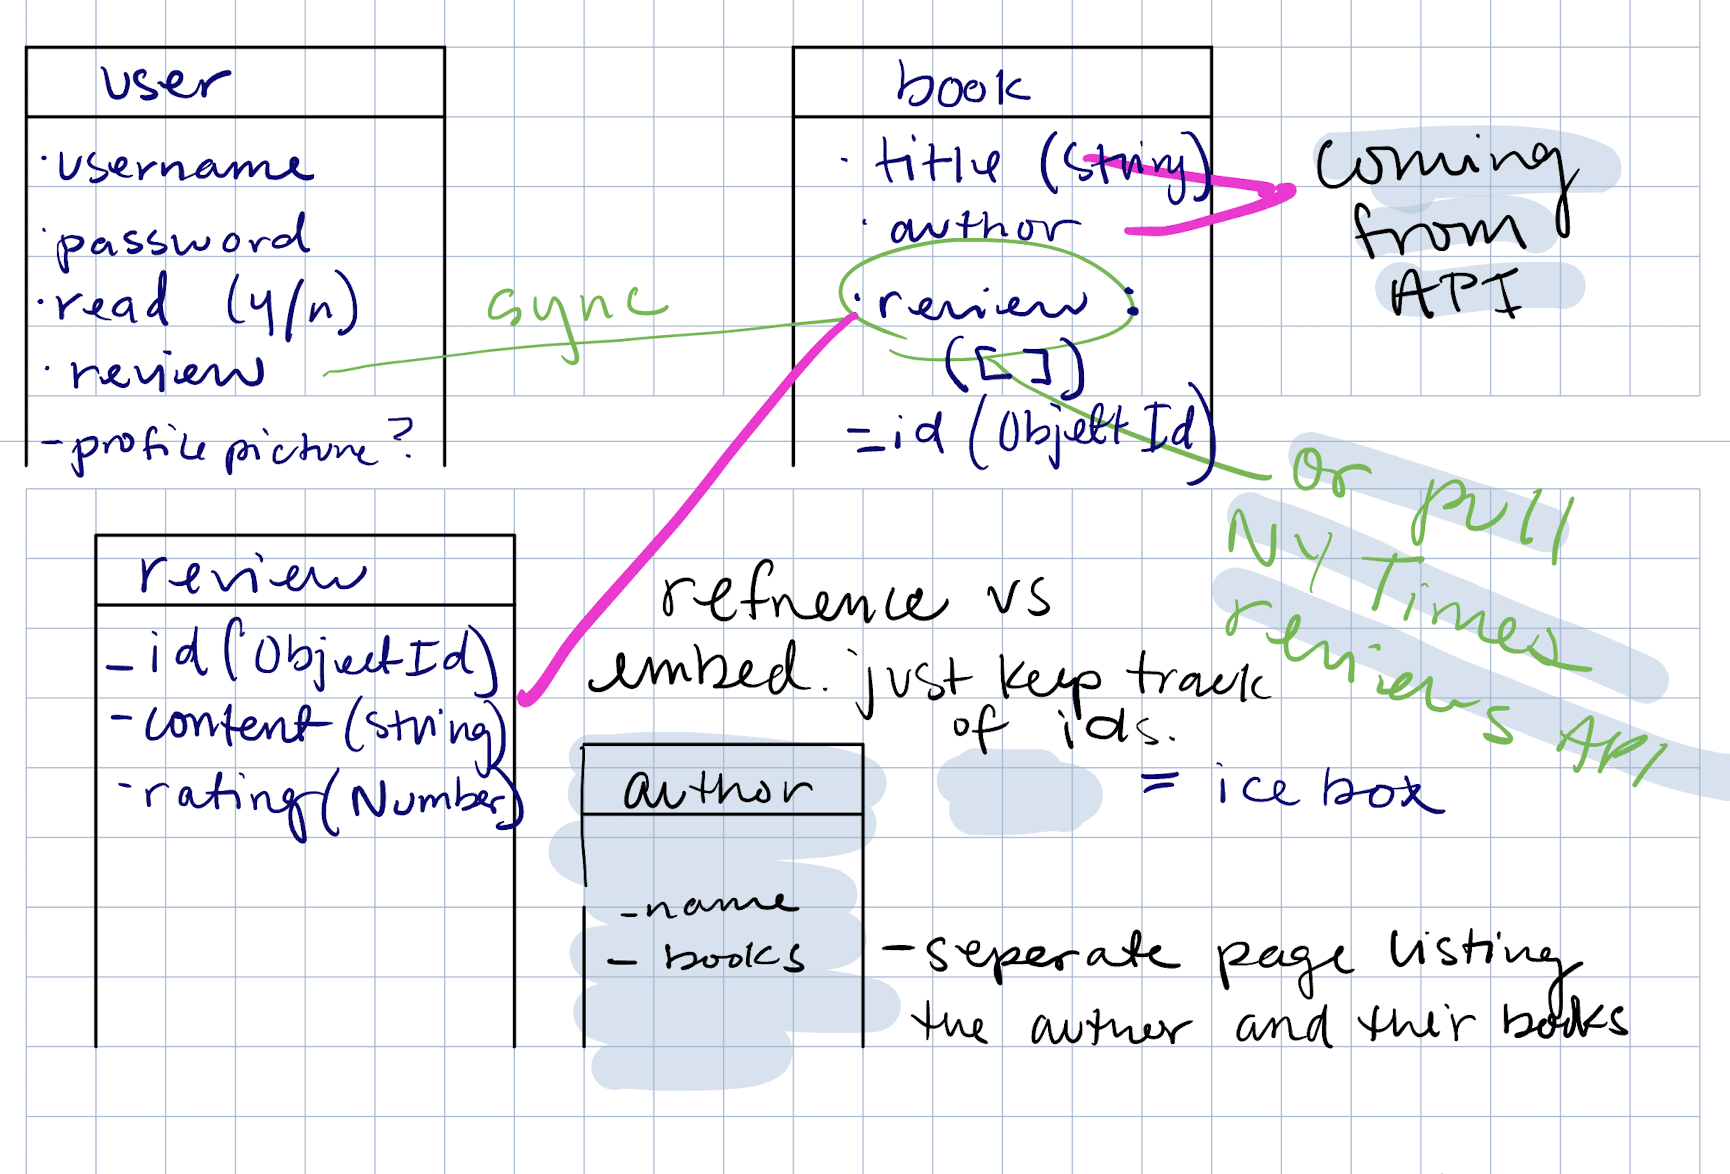 user
·username
·password
·read (y/n)
·review
-profile picture?
sync
book
·title (string)
·author
·review:
([])
=id (ObjectId)
coming
from
API
or pull
NY Times
reviews API
review
_id (ObjectId)
-content (string)
-rating (Number)
refnence vs
embed. just keep track
of ids.
= ice box
author
-name
- books
-seperate page listing
the author and their books